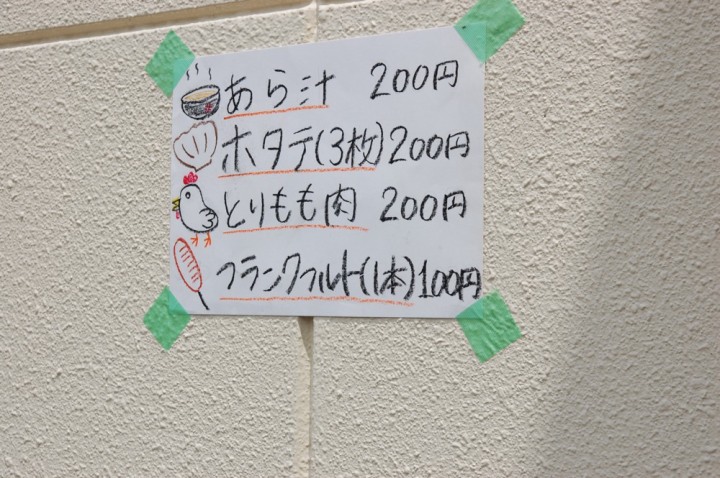 あら汁 200円
ホタテ(3枚)200円
とりもも肉 200円
フランクフルト(1本)100円